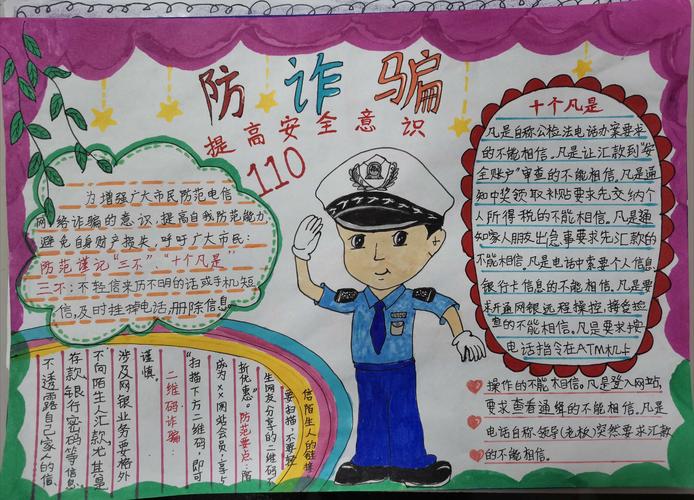 防诈骗
提高安全意识
110
为增强广大市民防范电信
网络诈骗的意识,提高自我防范能力
避免自身财产损失,呼吁广大市民:
防范谨记“三不”、“十个凡是”
三不:不轻信来历不明的话或手机短
信,及时挂掉电话,删除信息。
不透露自己家人的信
存款、银行密码等信息
不向陌生人汇款尤其是
涉及网银业务要格外
谨慎。
二维码诈骗:
“扫描下方二维码,即可
成为××网站会员,享占
折优惠”防范要点:陌
生网友分享的二维码不
要扫描,不要轻
信陌生人的链接
十个凡是
凡是自称公检法电话办案要求
的不能相信。凡是让汇款到“安
全账户”审查的不能相信。凡是通
知中奖领取补贴要求先交纳个
人所得税的不能相信。凡是通
知家人朋友出急事要求先汇款的
不能相信。凡是电话中索要个人信息
银行卡信息的不能相信。凡是要
开通网银远程操控,接台检
查的不能相信。凡是要求按
电话指令在ATM机卡
操作的不能相信。凡是登入网站,
要求查看通缉的不能相信。凡是
电话自称领导(老板)突然要求汇款
的不能相信。